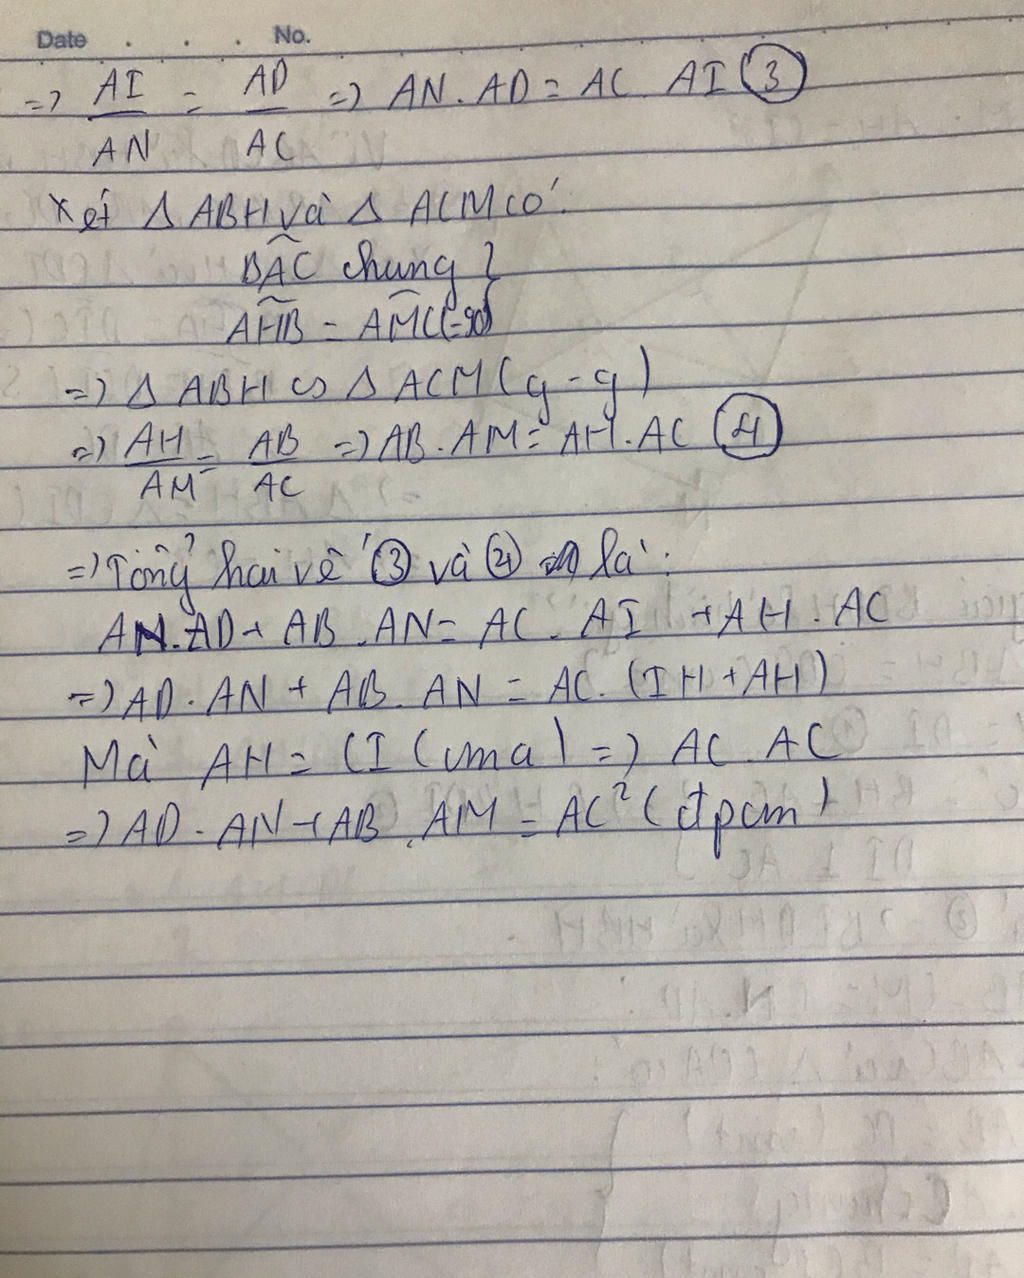 Date . . . No.
=> AI/AN = AD/AC => AN.AD = AC. AI (3)
Xét Δ ABH và Δ ACM có:
BAC chung }
AHB = AMC(=90)
=> Δ ABH ∽ Δ ACM (g-g)
=> AH/AM = AB/AC => AB.AM = AH.AC (4)
=> Tổng hai vế (3) và (4) là:
AN.AD + AB.AN = AC. AI + AH.AC
=> AD.AN + AB.AN = AC.(IH + AH)
Mà AH = CI (cma) => AC.AC
=> AD.AN + AB.AM = AC² (đpcm)